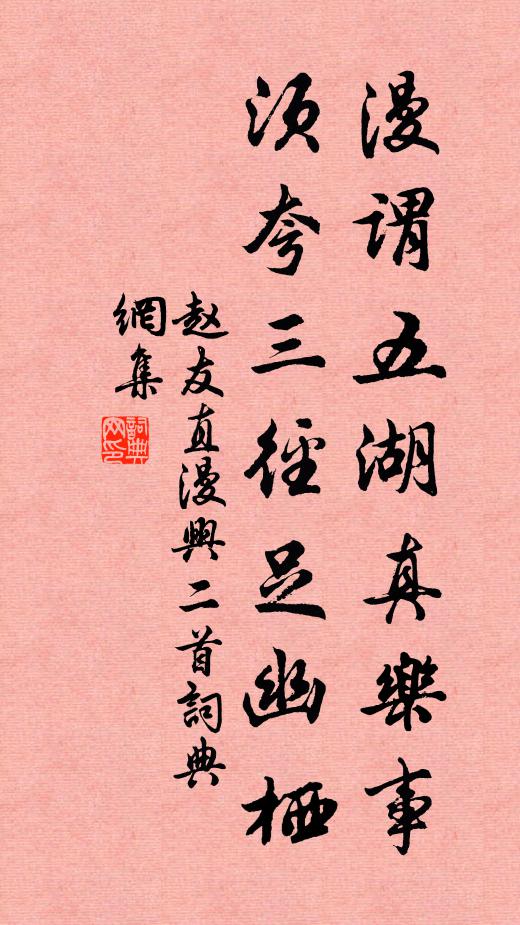 漫謂五湖真樂事
須夸三徑足幽栖
赵友直漫興二首詞典
網集
詞典
网印